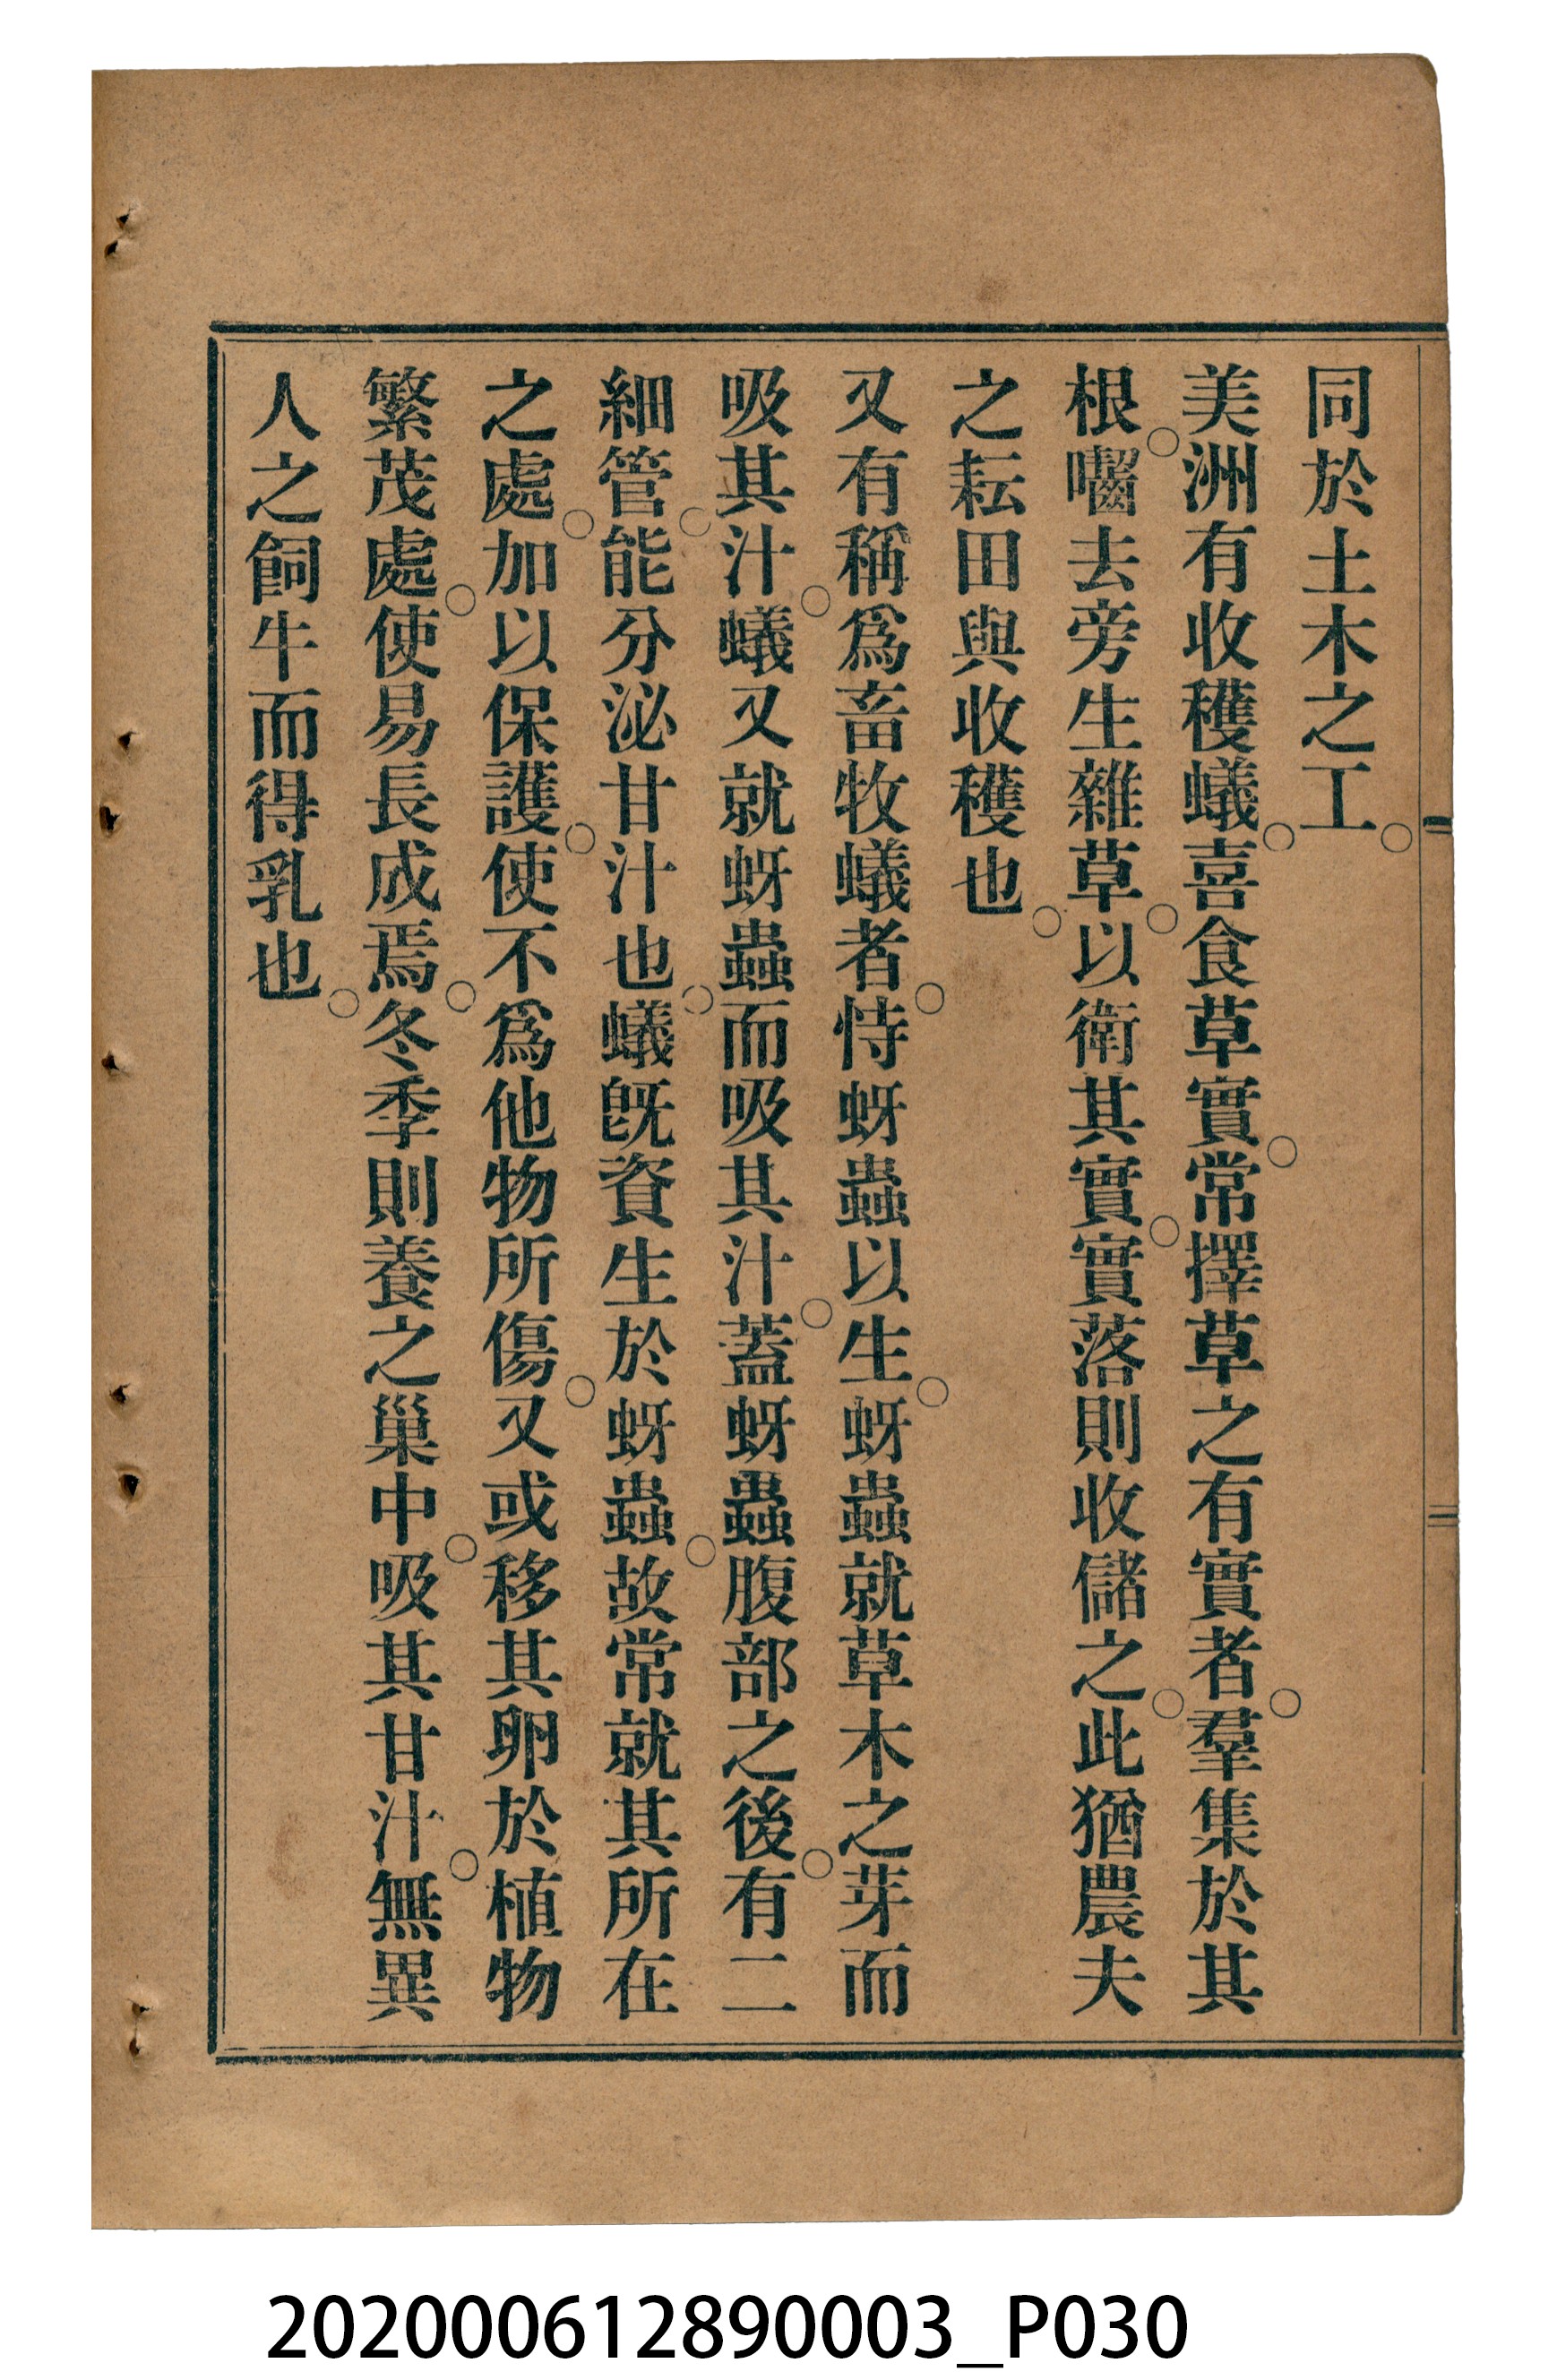 同於土木之工。
美洲有收穫蟻。喜食草實。常擇草之有實者。羣集於其
根。囓去旁生雜草。以衛其實。實落則收儲之。此猶農夫
之耘田與收穫也。
又有稱爲畜牧蟻者。恃蚜蟲以生。蚜蟲就草木之芽而
吸其汁。蟻又就蚜蟲而吸其汁。蓋蚜蟲腹部之後。有二
細管。能分泌甘汁也。蟻旣資生於蚜蟲。故常就其所在
之處。加以保護。使不爲他物所傷。又或移其卵於植物
繁茂處。使易長成焉。冬季則養之巢中。吸其甘汁。無異
人之飼牛而得乳也。
202000612890003_P030